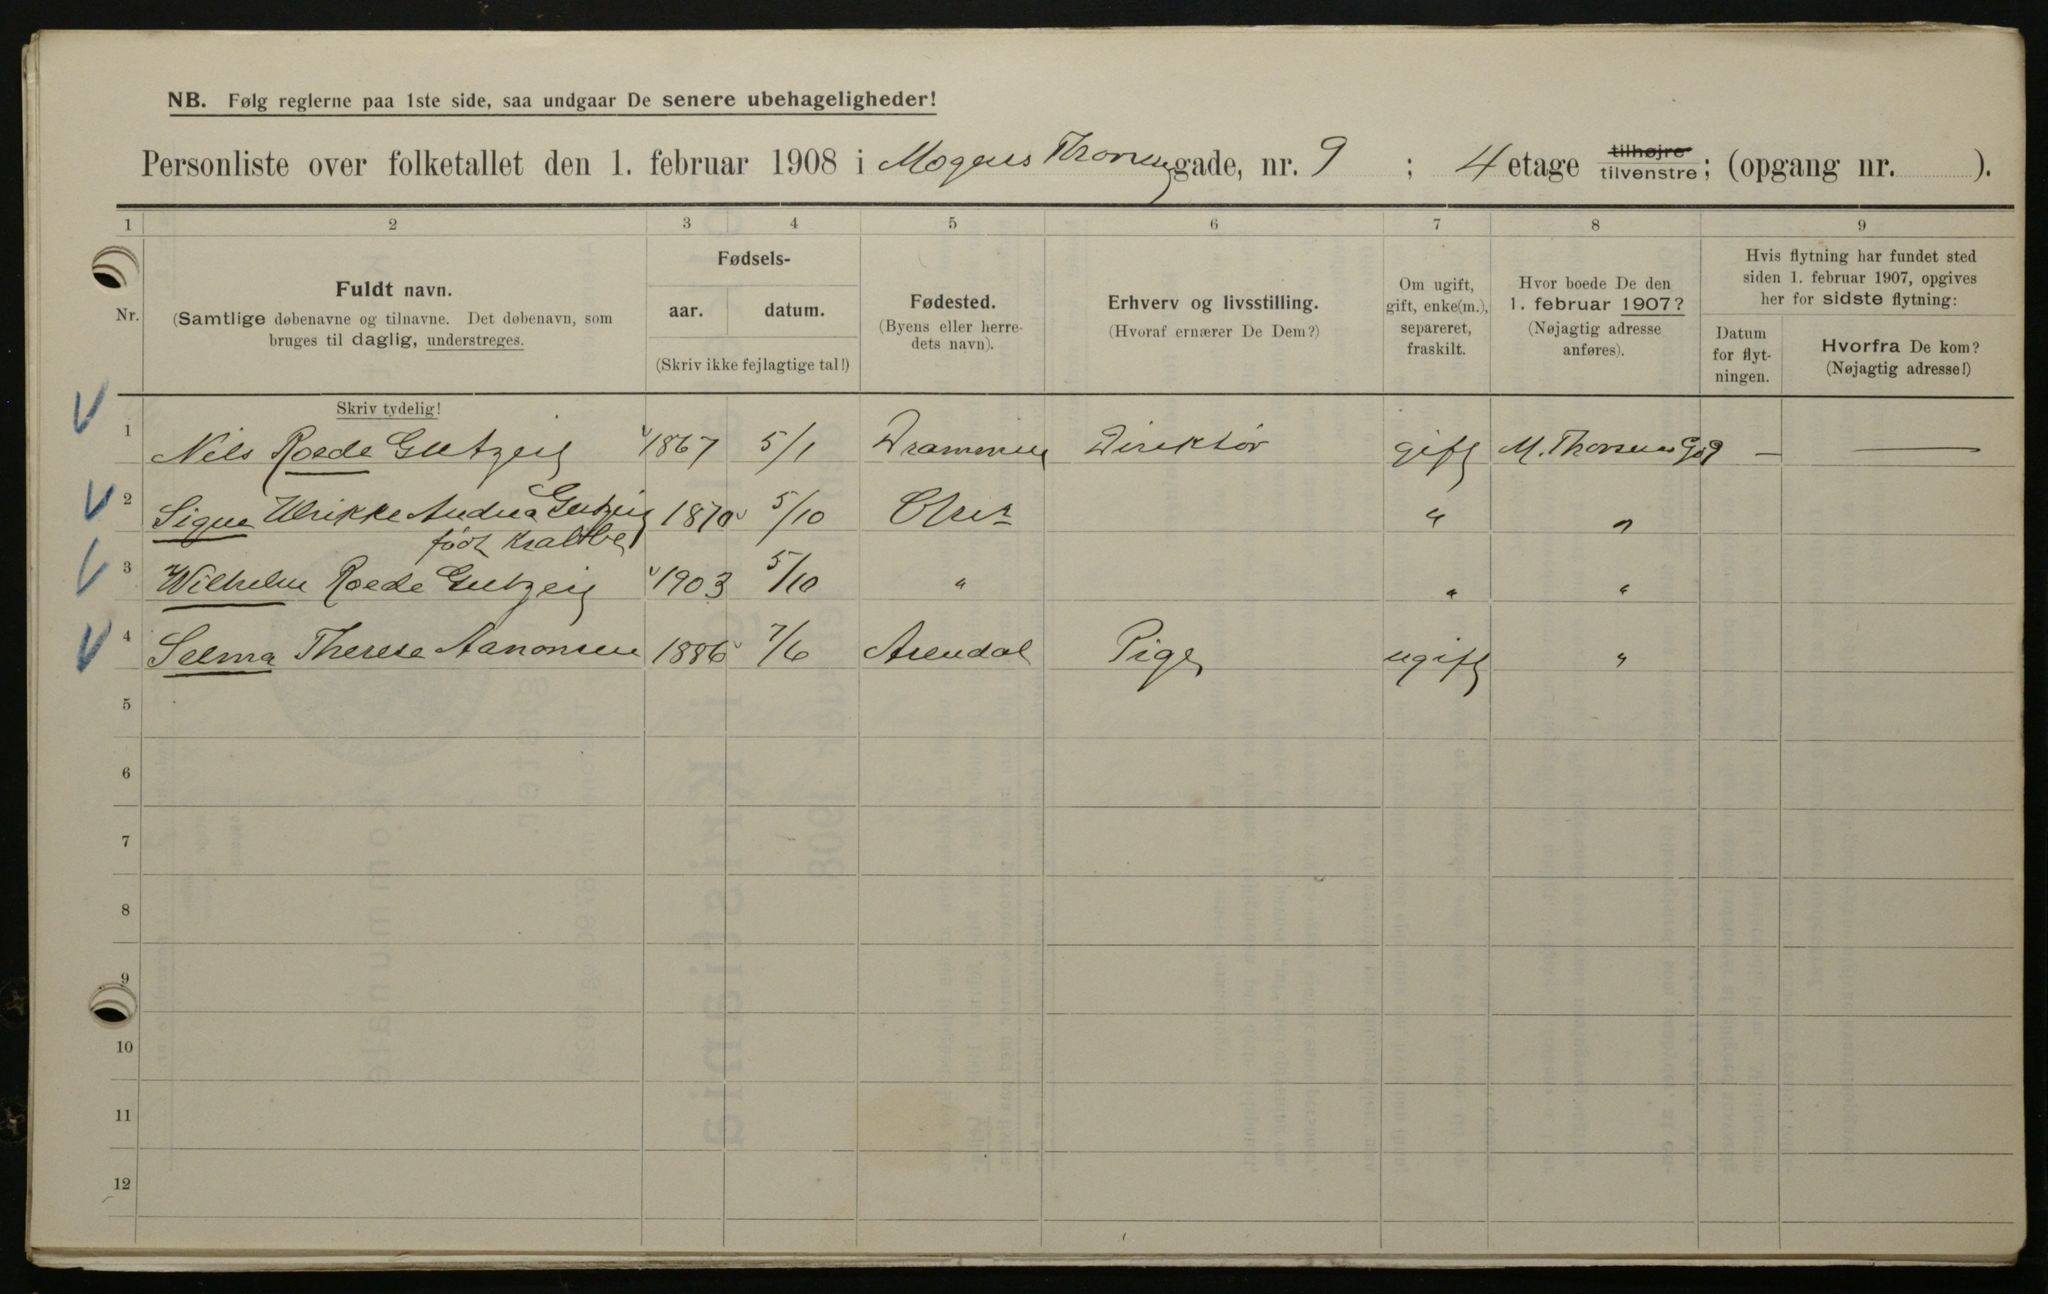 NB. Følg reglerne paa 1ste side, saa undgaar De senere ubehageligheder!
Personliste over folketallet den 1. februar 1908 i Mogens Thorsens gade, nr. 9 ; 4 etage tilhøjre tilvenstre; (opgang nr. ).
1 2 3 4 5 6 7 8 9
Nr.
Fuldt navn.
(Samtlige døbenavne og tilnavne. Det døbenavn, som
bruges til daglig, understreges.
Fødsels-
aar. datum.
(Skriv ikke fejlagtige tal!)
Fødested.
(Byens eller herre-
dets navn).
Erhverv og livsstilling.
(Hvoraf ernærer De Dem?)
Om ugift,
gift, enke(m.),
separeret,
fraskilt.
Hvor boede De den
1. februar 1907?
(Nøjagtig adresse
anføres).
Hvis flytning har fundet sted
siden 1. februar 1907, opgives
her for sidste flytning:
Datum
for flyt-
ningen.
Hvorfra De kom?
(Nøjagtig adresse!)
Skriv tydelig!
1 Nils Roede Gutzeit 1867 5/1 Drammen Direktør gift M. Thorsens G. 9 — —
2 Signe Ulrikke Andrea Gutzeit 1870 5/10 " "
født
3 Wilhelm Roede Gutzeit 1903 5/10 " " "
4 Selma Therese Aanonsen 1886 7/6 Arendal Pige ugift "
5
6
7
8
9
10
11
12